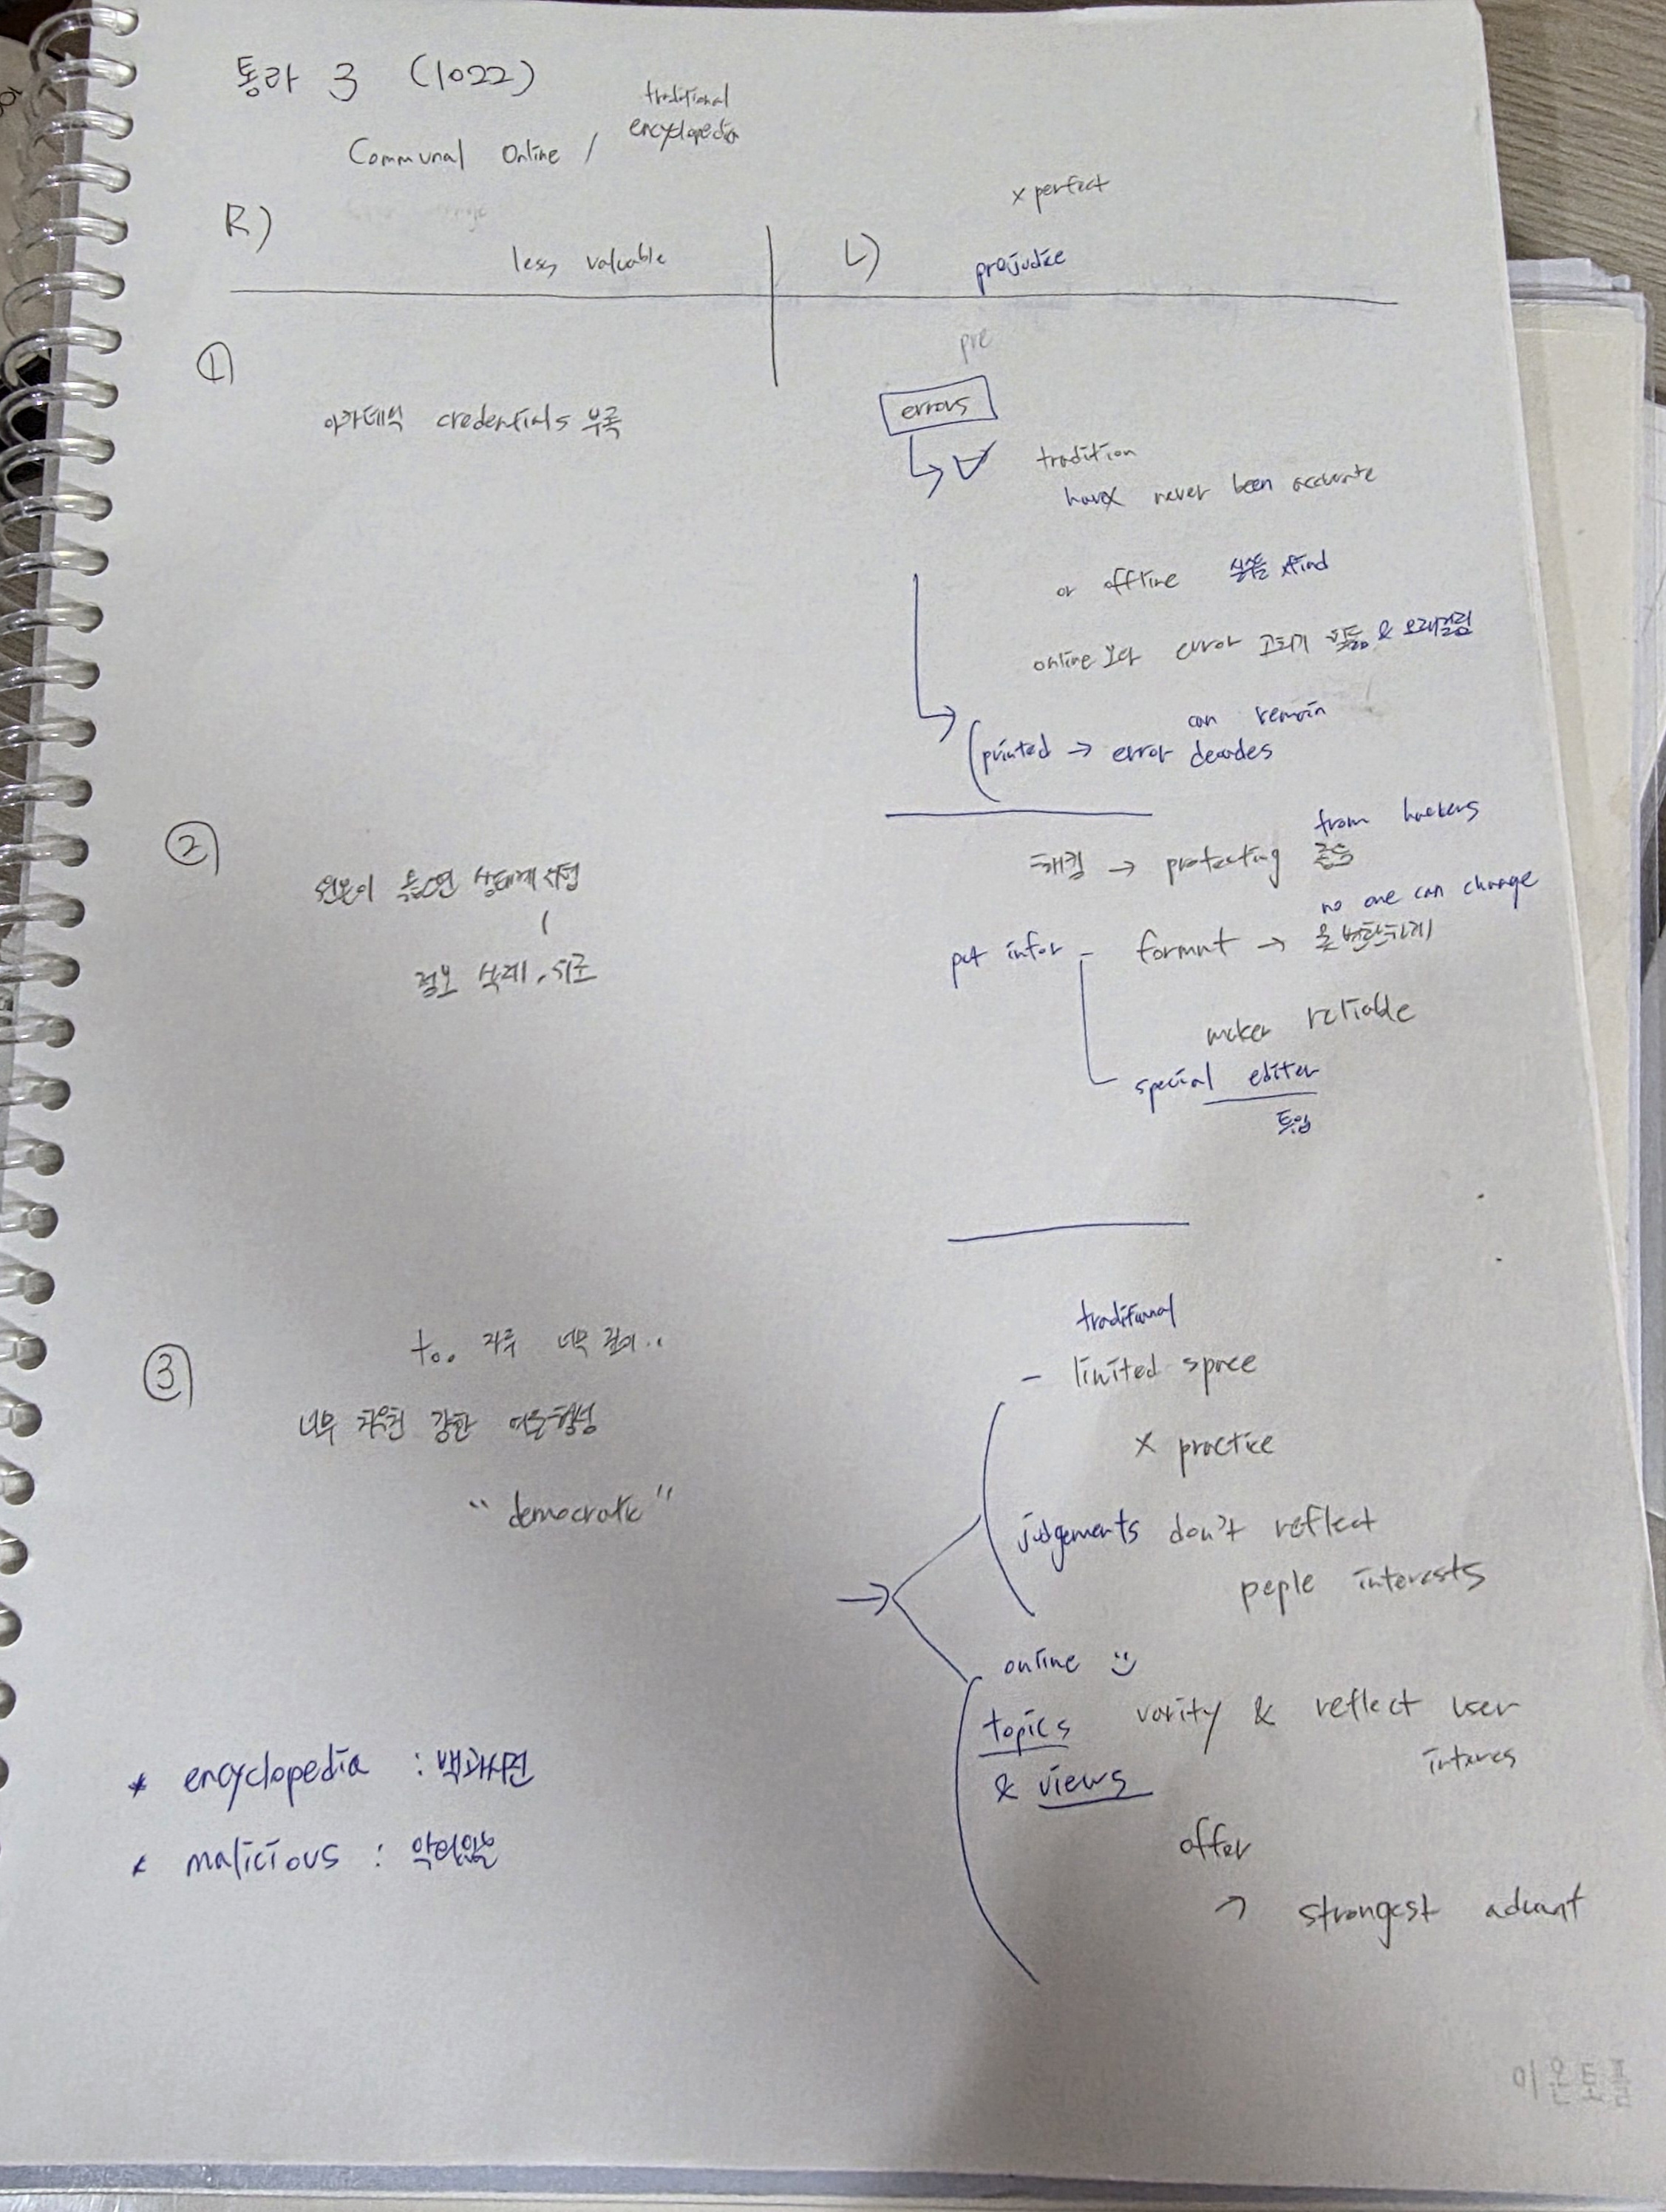 통라 3 (1022)
traditional
encyclopedia
Communal Online /
x perfect
R)
less valuable
L)
prejudice
pre
①
errors
아카데믹 credentials 부족
tradition
have never been accurate
or offline 실수들 xfind
online 보다 error 고치기 힘듦 & 오래걸림
can remain
printed → error decades
②
from hackers
해킹 → protecting 존중
no one can change
put infor - format → 못 변환하게
정보 삭제,
maker reliable
special editer
투입
traditional
③
too 자주 너무 깊이..
- limited space
너무 강한
x practice
"democratic"
judgements don't reflect
peple interests
online
topics varity & reflect user
interes
& views
* encyclopedia : 백과사전
offer
* malicious : 악의있는
→ strongest advant
이온토플